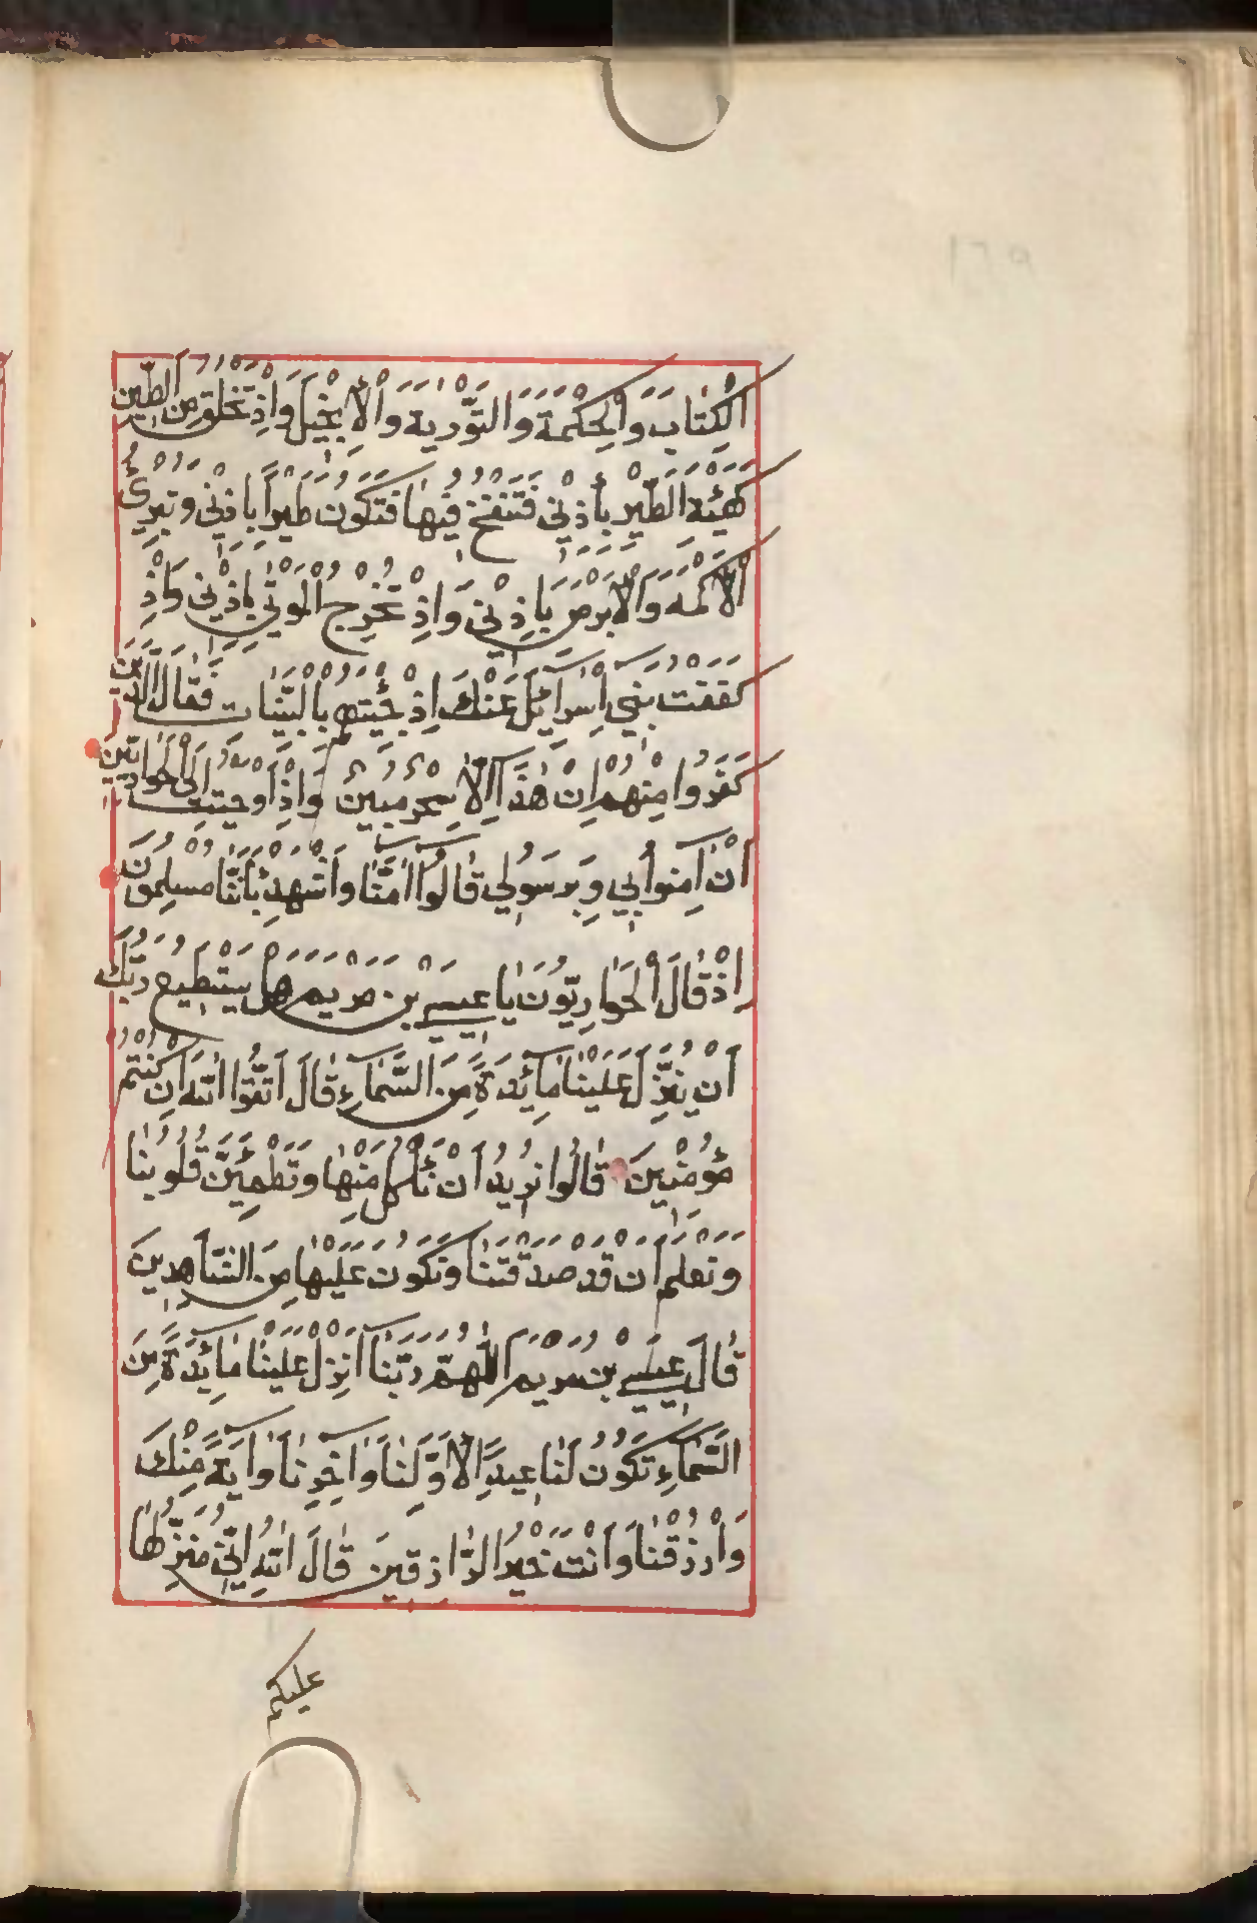 الْكِتَابَ وَالْحِكْمَةَ وَالتَّوْرٰيةَ وَالْاِنْجِيلَ وَاِذْ تَخْلُقُ مِنَ الطِّينِ
كَهَيْئَةِ الطَّيْرِ بِأِذْنِي فَتَنْفُخُ فِيْهَا فَتَكُونُ طَيْراً بِاِذْنِي وَتُبْرِئُ
الْاَكْمَهَ وَالْاَبْرَصَ بِاِذْنِي وَاِذْ تُخْرِجُ الْمَوْتٰي بِاِذْنِي وَاِذْ
كَفَفْتُ بَنِي اِسْرَائِيلَ عَنْكَ اِذْ جِئْتَهُمْ بِالْبَيِّنَاتِ فَقَالَ الَّذِينَ
كَفَرُوا مِنْهُمْ اِنْ هٰذَا اِلَّا سِحْرٌ مُبِينٌ وَاِذْ اَوْحَيْتُ اِلَي الْحَوَارِيِّينَ
اَنْ اٰمِنُوا بِي وَبِرَسُولِي قَالُوا اٰمَنَّا وَاشْهَدْ بِأَنَّنَا مُسْلِمُونَ
اِذْ قَالَ الْحَوَارِيُّونَ يَا عِيسَي بْنَ مَرْيَمَ هَلْ يَسْتَطِيعُ رَبُّكَ
اَنْ يُنَزِّلَ عَلَيْنَا مَائِدَةً مِنَ السَّمَاءِ قَالَ اتَّقُوا اللّٰهَ اِنْ كُنْتُمْ
مُؤْمِنِينَ قَالُوا نُرِيدُ اَنْ نَأْكُلَ مِنْهَا وَتَطْمَئِنَّ قُلُوبُنَا
وَنَعْلَمَ اَنْ قَدْ صَدَقْتَنَا وَنَكُونَ عَلَيْهَا مِنَ الشَّاهِدِينَ
قَالَ عِيسَي بْنُ مَرْيَمَ اللّٰهُمَّ رَبَّنَا اَنْزِلْ عَلَيْنَا مَائِدَةً مِنَ
السَّمَاءِ تَكُونُ لَنَا عِيدًا لِاَوَّلِنَا وَاٰخِرِنَا وَاٰيَةً مِنْكَ
وَارْزُقْنَا وَاَنْتَ خَيْرُ الرَّازِقِينَ قَالَ اللّٰهُ اِنِّي مُنَزِّلُهَا
عليكم